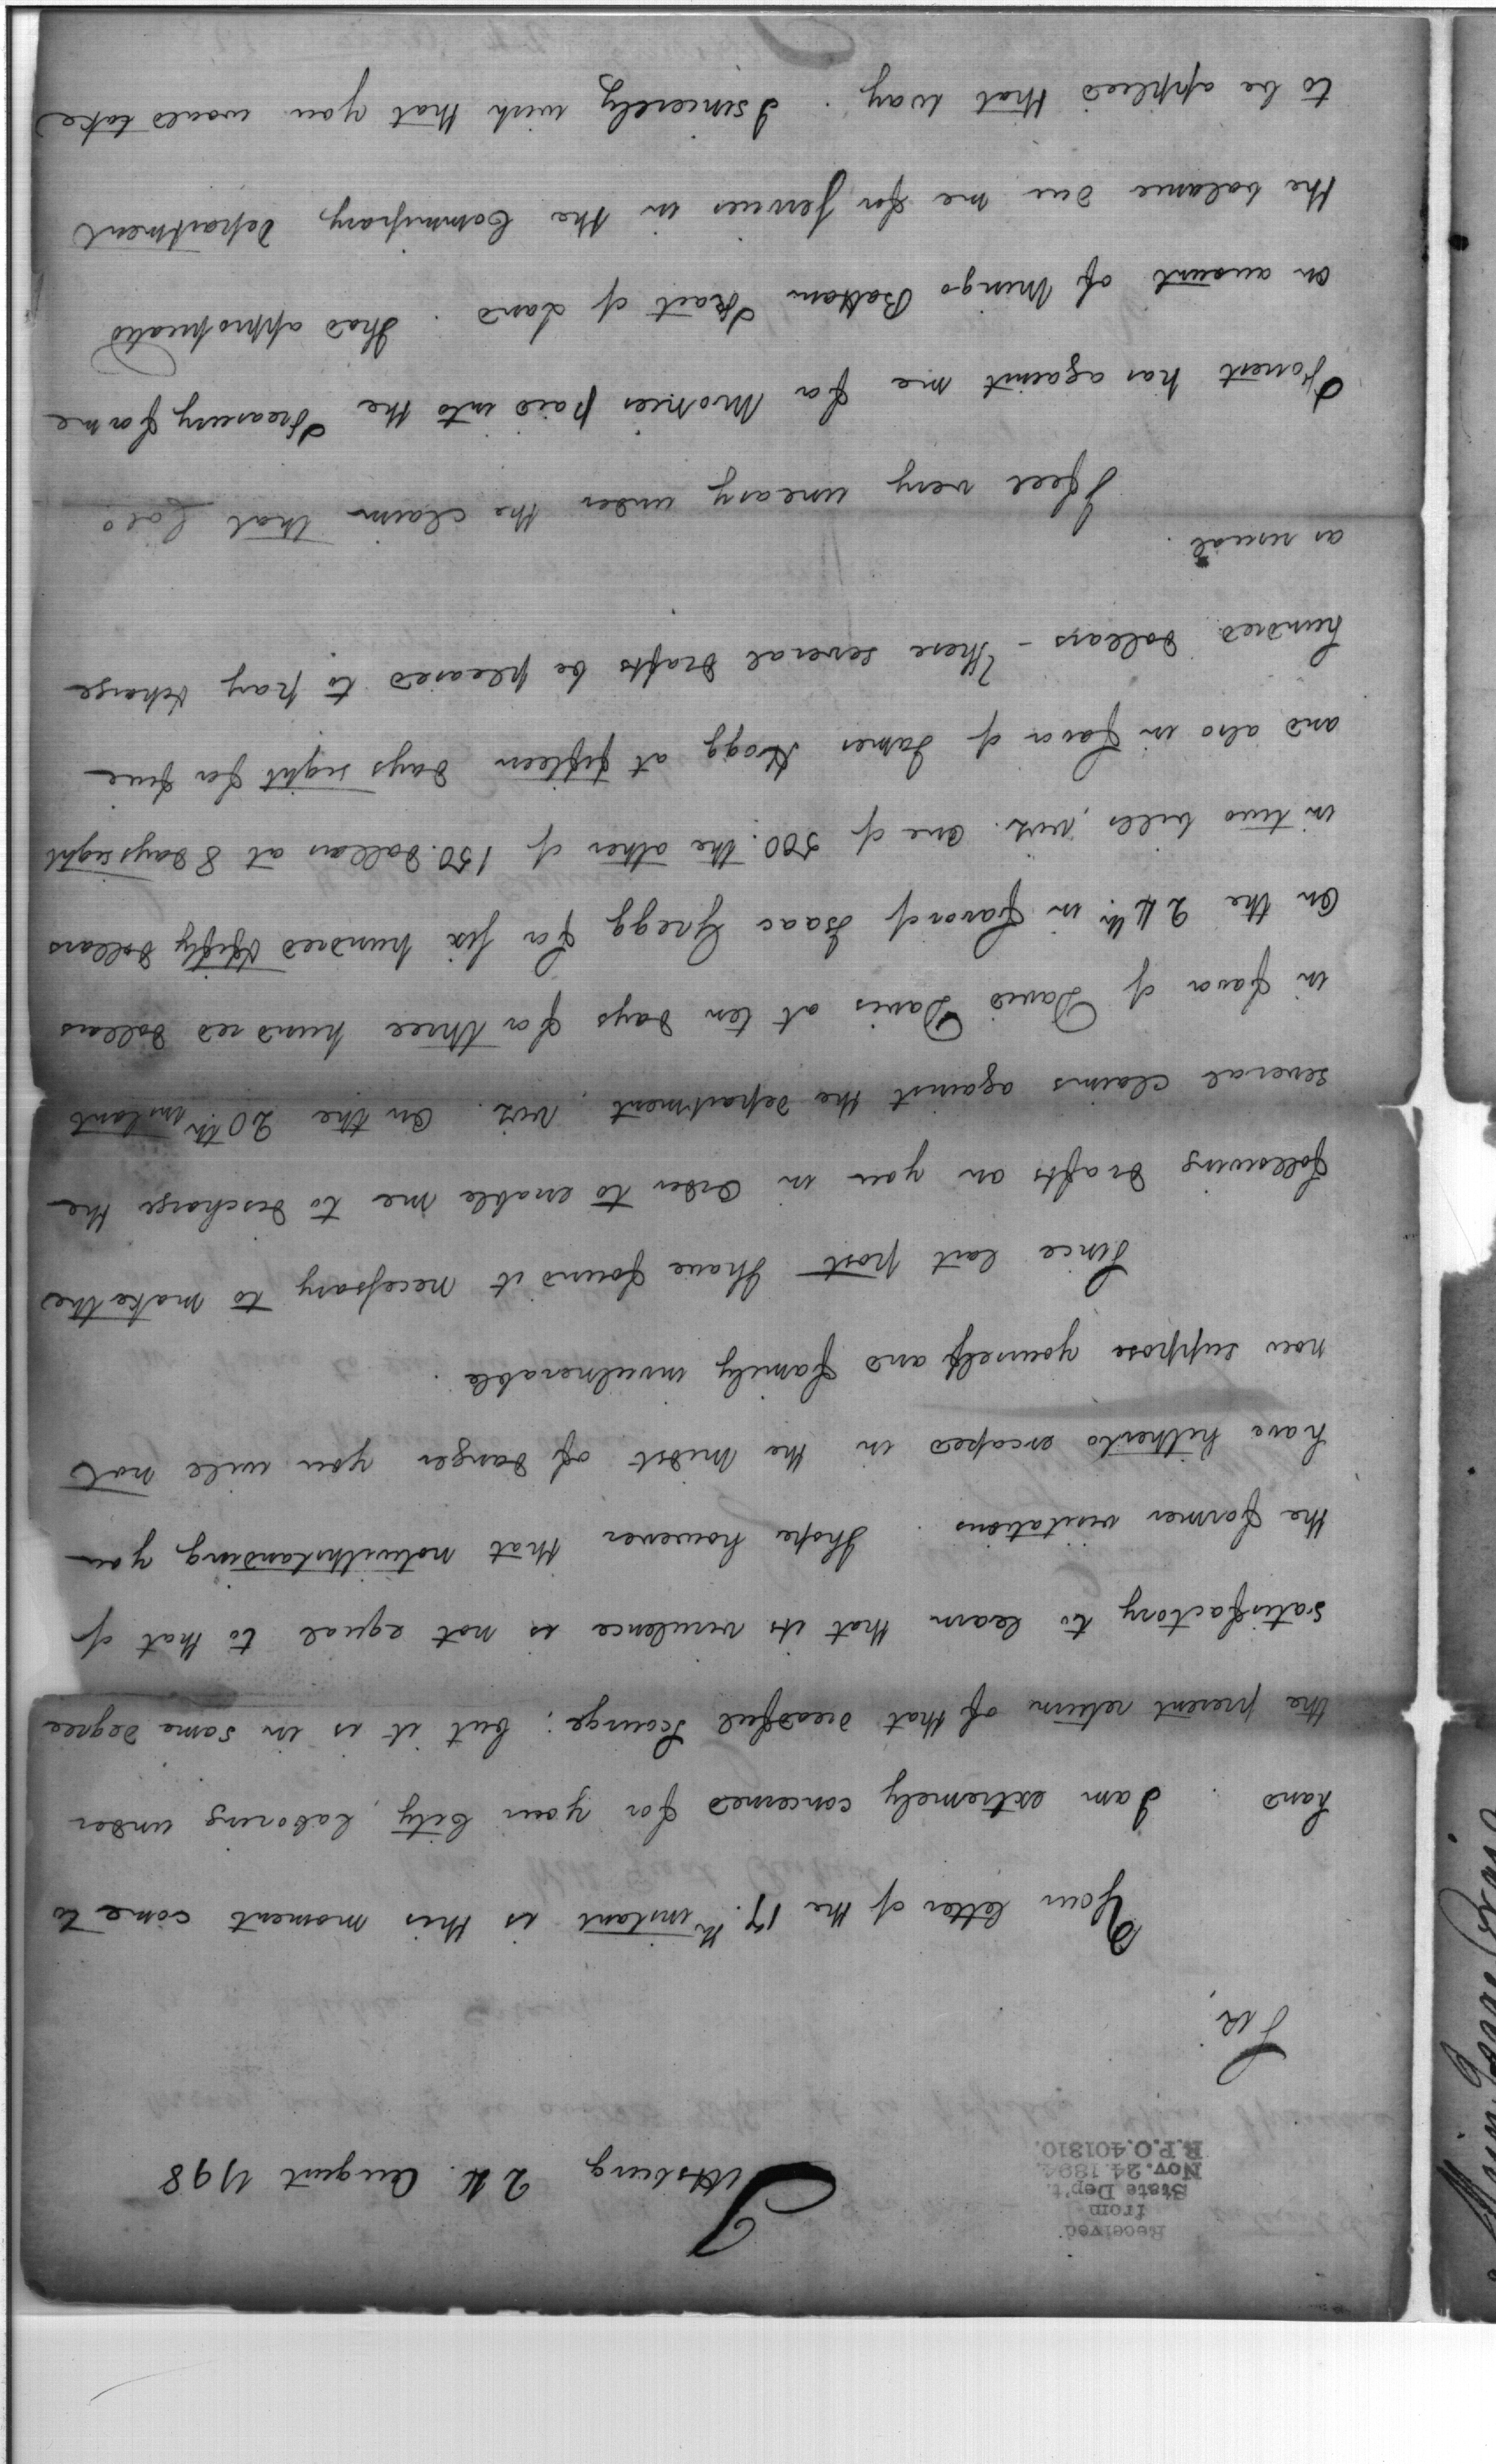 Received
from
State Dep't.
Nov. 24. 1894.
R.P.O. 401810.
Pittsburg 24. August 1798
Sir,
Your letter of the 17th. instant is this moment come to
hand. I am extremely concerned for your City, laboring under
the present return of that dreadful scourge; but it is in some degree
satisfactory to learn that its virulence is not equal to that of
the former visitations. I hope however that notwithstanding you
have hitherto escaped in the midst of danger you will not
now suppose yourself and family invulnerable.
Since last post I have found it necessary to make the
following drafts on you in order to enable me to discharge the
several claims against the department, viz. On the 20th. instant
in favor of David Davis at ten days for three hundred dollars
on the 24th. in favor of Isaac Gregg for six hundred & fifty dollars
in two bills, viz. one of 500. the other of 150. dollars at 8 days sight
and also in favor of James Hogg at fifteen days sight for five
hundred dollars - These several drafts be pleased to pay & charge
as usual.
I feel very uneasy under the claim that Colo
Forrest has against me for monies paid into the Treasury for me
on account of Mingo Bottom Tract of Land. I had appropriated
the balance due me for services in the Commissary department
to be applied that way. I sincerely wish that you would take
Majr. Isaac Craig